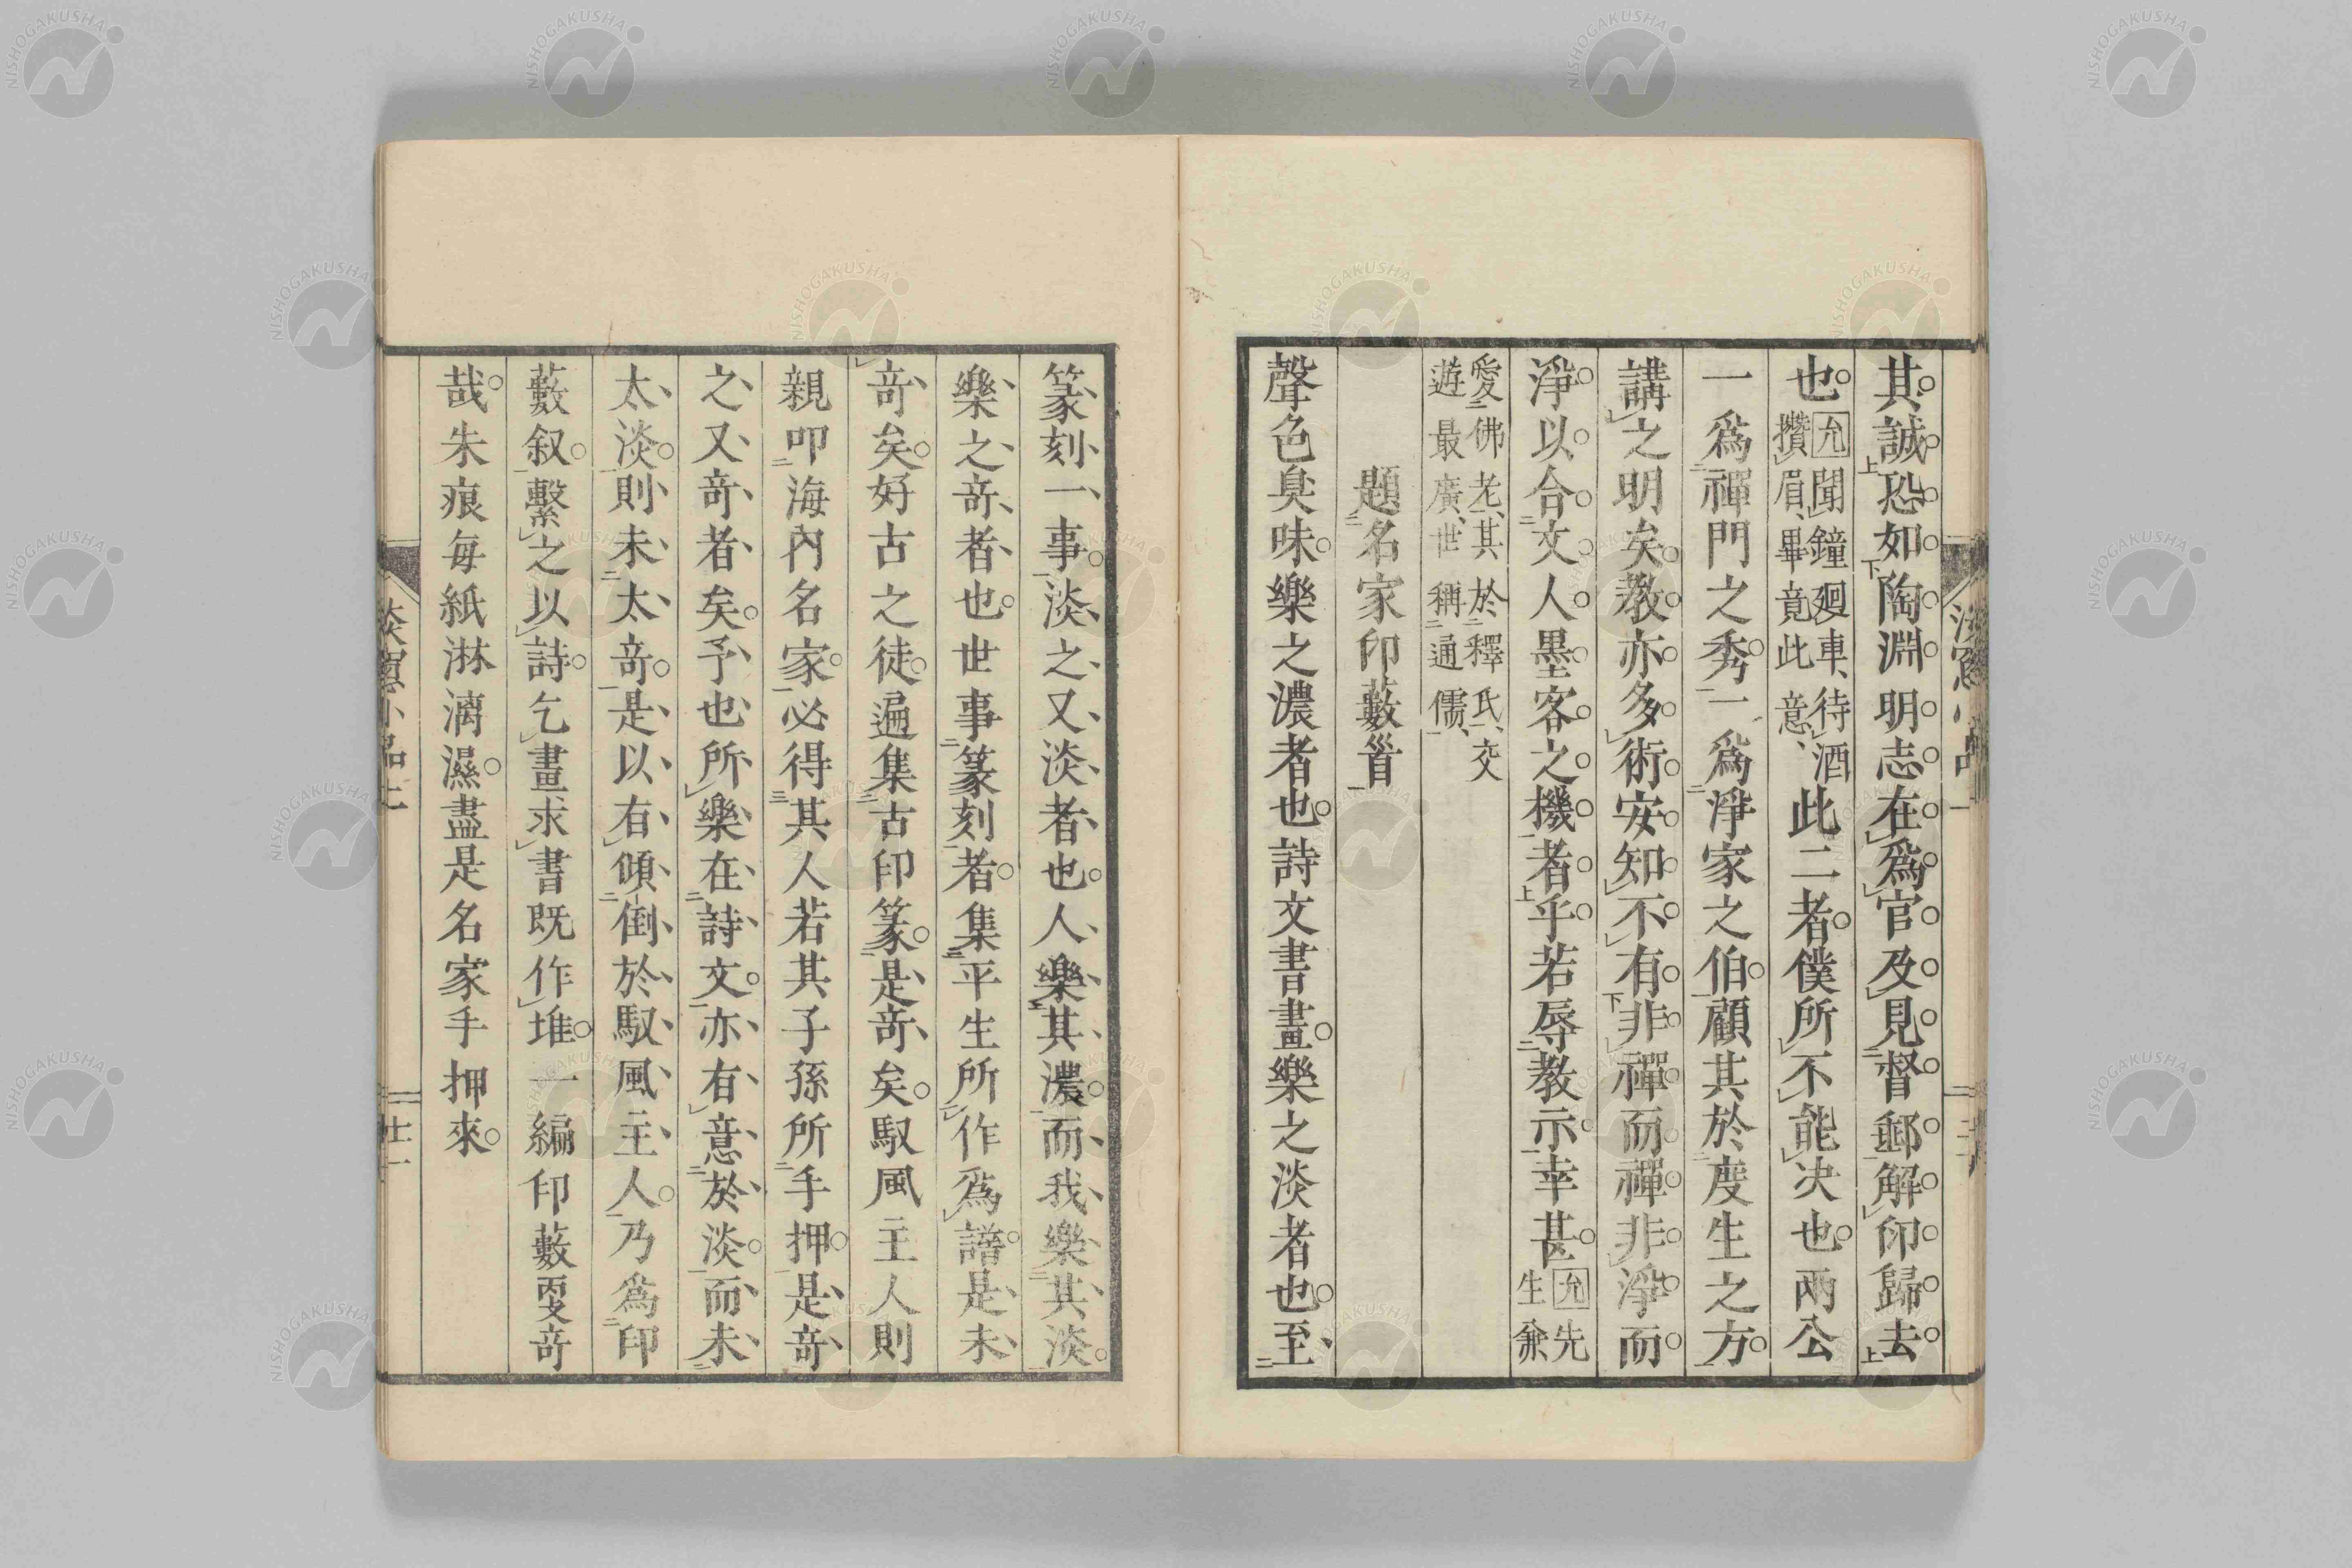 其誠恐如陶淵明志在爲官及見督郵解印歸去
也允聞鐘廻車待酒攢眉畢竟此意此二者僕所不能決也兩公
一爲禪門之秀一爲淨家之伯顧其於度生之方
講之明矣教亦多術安知不有非禪而禪非淨而
淨以合文人墨客之機者乎若辱教示幸甚允先生兼
愛佛老其於釋氏交遊最廣世稱通儒
題名家印藪首
聲色臭味樂之濃者也詩文書畫樂之淡者也至
篆刻一事淡之又淡者也人樂其濃而我樂其淡
樂之竒者也世事篆刻者集平生所作爲譜是未
竒矣好古之徒遍集古印篆是竒矣馭風主人則
親叩海內名家必得其人若其子孫所手押是竒
之又竒者矣予也所樂在詩文亦有意於淡而未
太淡則未太竒是以有傾倒於馭風主人乃爲印
藪叙繫之以詩乞畫求書既作堆一編印藪更竒
哉朱痕每紙淋漓濕盡是名家手押來